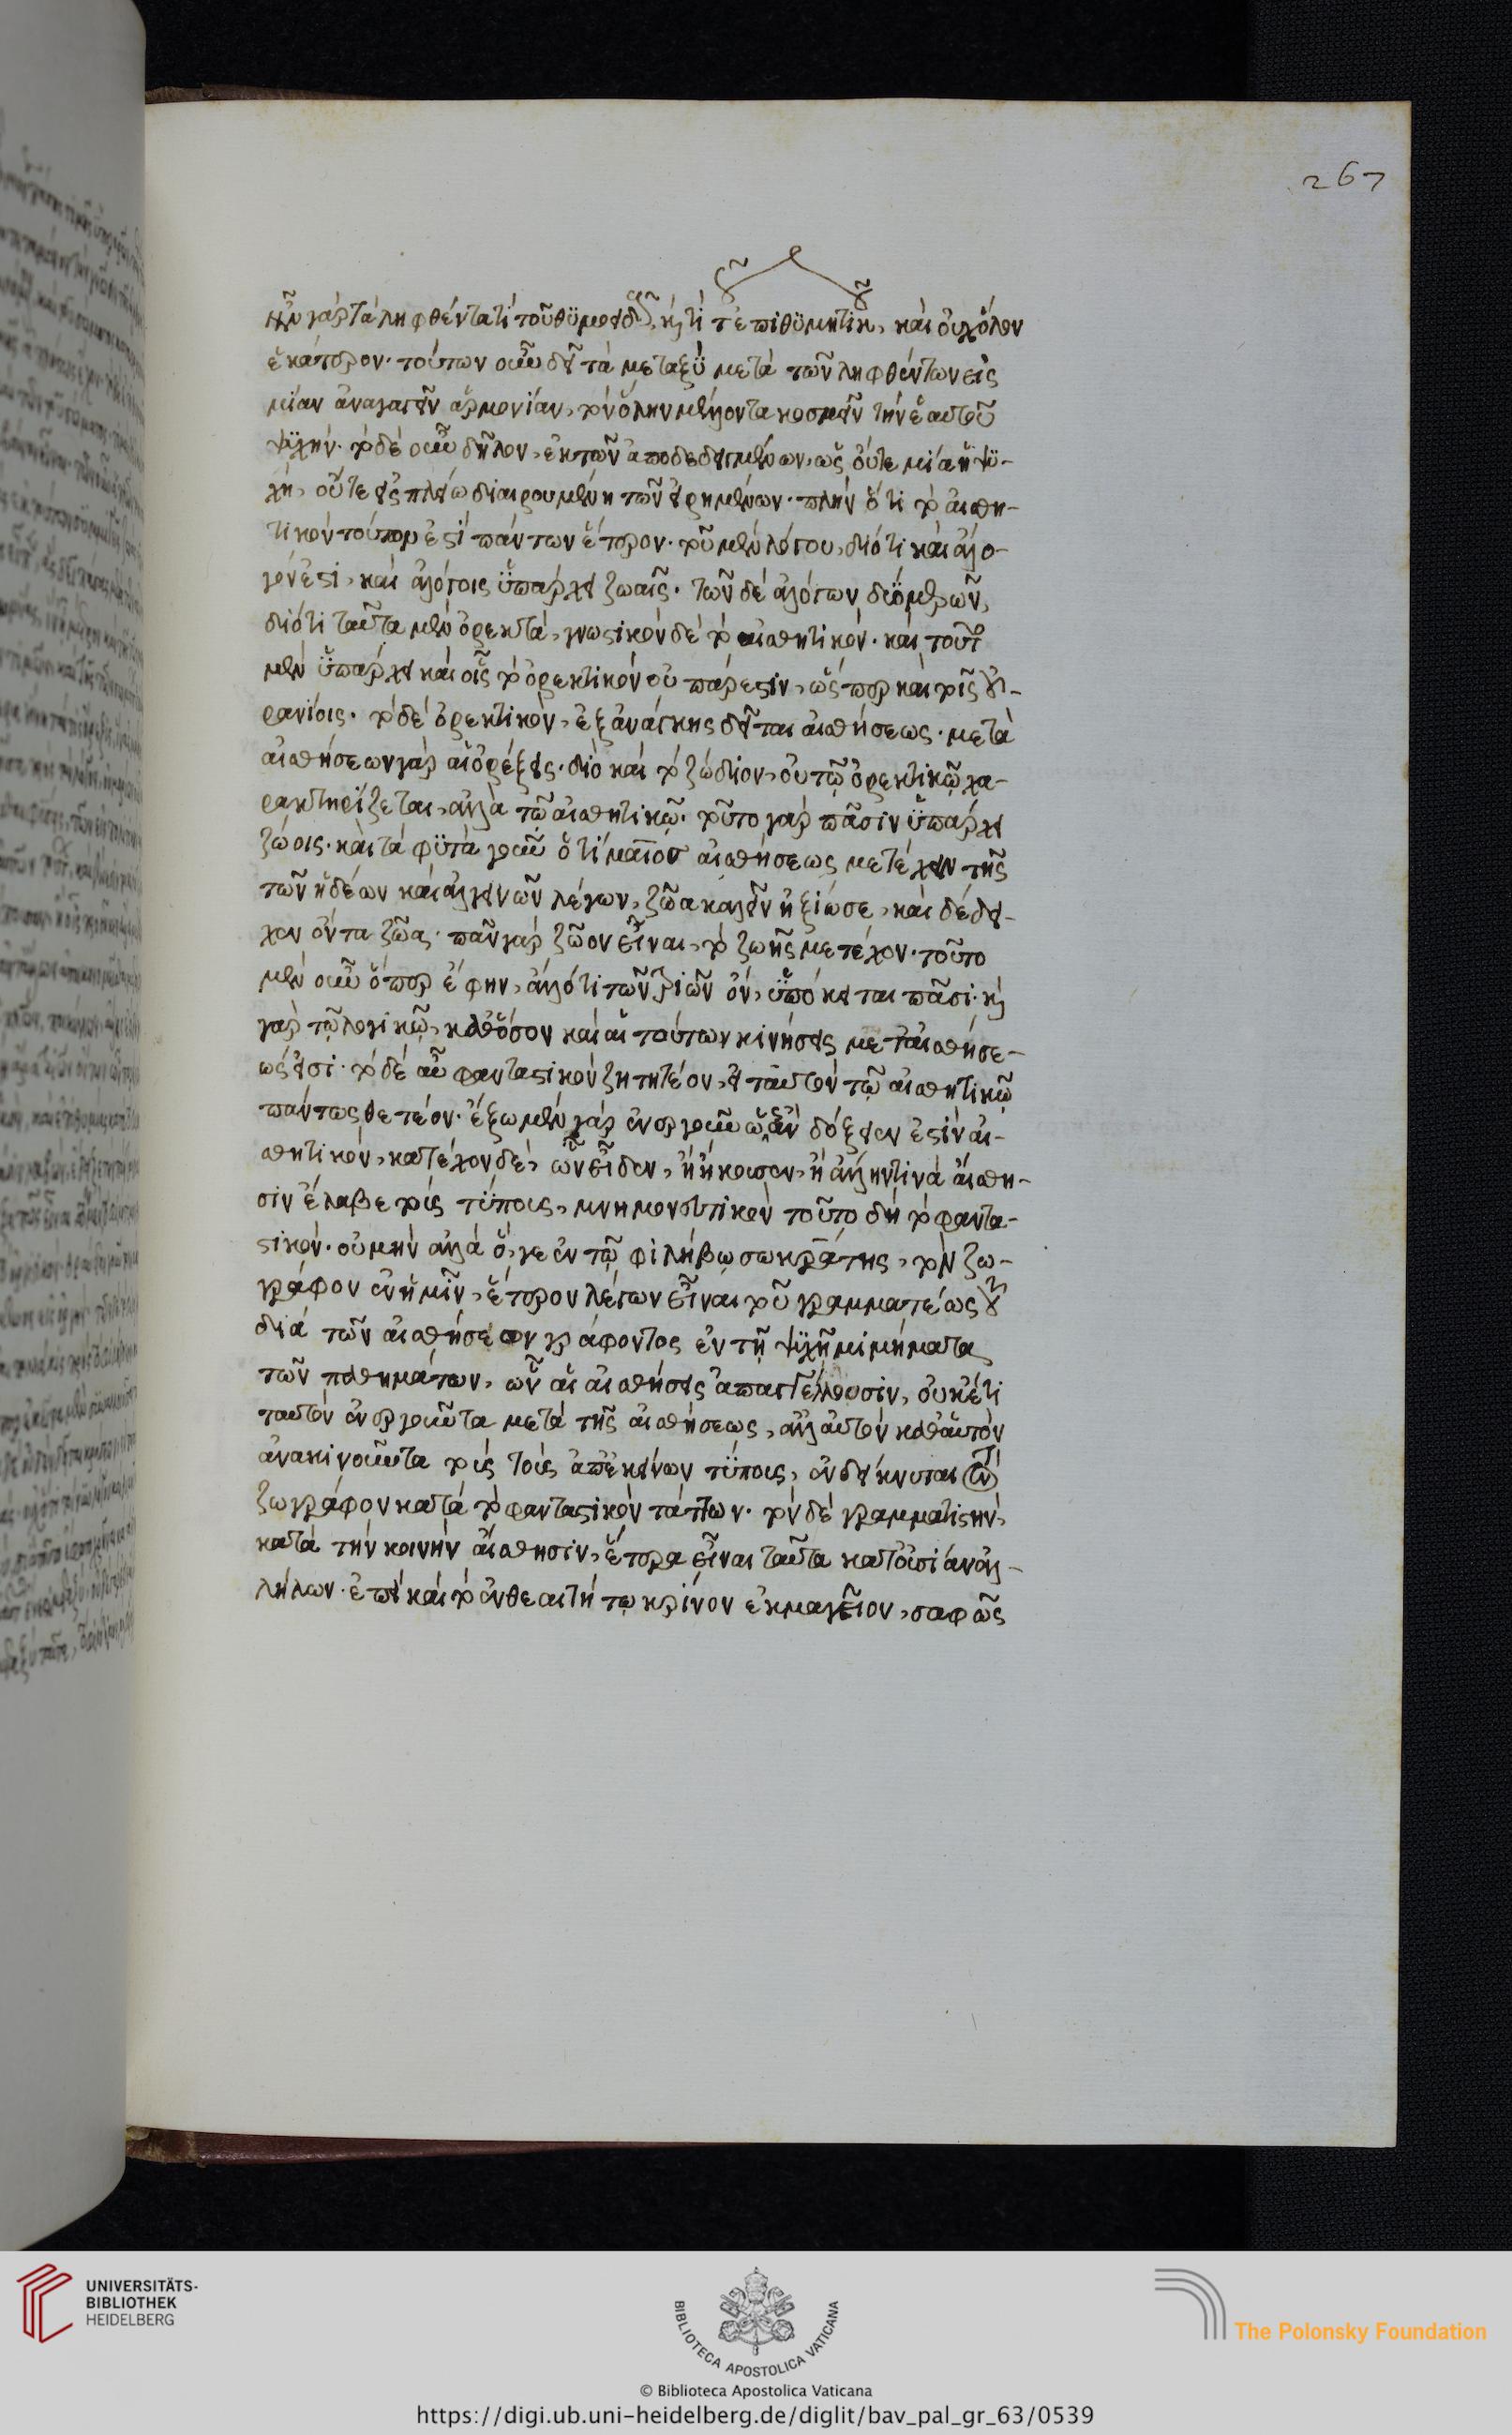 267
νῦν γὰρ τὰ ληφθέντα τὶ τοῦ θυμοειδοῦς, κ τὶ τοῦ ἐπιθυμητικοῦ, καὶ οὐχ ὅλον
ἑκάτερον. τούτων οὖν δεῖ τὰ μεταξὺ μετὰ τῶν ληφθέντων εἰς
μίαν ἀναγαγεῖν ἁρμονίαν, τὸν ὅλην μέλλοντα κοσμεῖν τὴν ἑαυτοῦ
ψυχήν. τὸ δὲ οὖν δῆλον, ἐκ τῶν ἀποδεδειγμένων, ὡς οὔτε μία ἡ ψυ-
χὴ, οὔτε εἰς πλείω διαιρουμένη τῶν εἰρημένων. πλὴν ὅτι τὸ αἰσθη-
τικὸν τούτων ἐστὶ πάντων ἕτερον. τοῦ μὲν λόγου, διότι καὶ ἄλο-
γόν ἐστι, καὶ ἀλόγοις ὑπάρχει ζωαῖς. τῶν δὲ ἀλόγων δύο μερῶν,
διότι ταῦτα μὲν ὀρεκτὰ, γνωστικὸν δὲ τὸ αἰσθητικόν. καὶ τοῦτο
μὲν ὑπάρχει καὶ οἷς τὸ ὀρεκτικὸν οὐ πάρεστιν, ὥσπερ καὶ τοῖς οὐ-
ρανίοις. τὸ δὲ ὀρεκτικὸν, ἐξ ἀνάγκης δεῖται αἰσθήσεως. μετὰ
αἰσθήσεων γὰρ αἱ ὀρέξεις. διὸ καὶ τὸ ζώδιον, οὐ τῷ ὀρεκτικῷ χα-
ρακτηρίζεται, ἀλλὰ τῷ αἰσθητικῷ. τοῦτο γὰρ πᾶσιν ὑπάρχει
ζώοις. καὶ τὰ φυτὰ γοῦν ὁ τίμαιος αἰσθήσεως μετέχειν τῆς
τῶν ἡδέων καὶ ἀλγεινῶν λέγων, ζῶα καλεῖν ἠξίωσε, καὶ δέδει-
χεν ὄντα ζῶα. πᾶν γὰρ ζῶον εἶναι, τὸ ζωῆς μετέχον. τοῦτο
μὲν οὖν ὅπερ ἔφην, ἄλλο τι τῶν τριῶν ὂν, ὑπόκειται πᾶσι. κ
γὰρ τῷ λογικῷ, καθόσον καὶ αἱ τούτων κινήσεις μετ' αἰσθήσε-
ώς εἰσι. τὸ δὲ αὖ φανταστικὸν ζητητέον, εἰ ταὐτὸν τῷ αἰσθητικῷ
πάντως θετέον. ἔξω μὲν γὰρ ἐνεργοῦν ὡς ἂν δόξειεν ἐστὶν αἰ-
σθητικὸν, κατέχον δὲ, ὧν εἶδεν, ἢ ἤκουσεν, ἢ ἄλλην τινὰ αἴσθη-
σιν ἔλαβε τοὺς τύπους, μνημονευτικὸν τοῦτο δὴ τὸ φαντα-
στικόν. οὐ μὴν ἀλλὰ ὅ, γε ἐν τῷ φιλήβῳ σωκράτης, τὸν ζω-
γράφον ἐν ἡμῖν, ἕτερον λέγων εἶναι τοῦ γραμματέως τοῦ
διὰ τῶν αἰσθήσεων γράφοντος ἐν τῇ ψυχῇ μιμήματα
τῶν παθημάτων, ὧν αἱ αἰσθήσεις ἀπαγγέλλουσιν, οὐκέτι
ταὐτὸν ἐνεργοῦντα μετὰ τῆς αἰσθήσεως, ἀλλ' αὐτὸν καθ' αὑτὸν
ἀνακινοῦντα τοὺς τοὺς ἀπ' ἐκείνων τύπους, ἐνδείκνυται τὸν
ζωγράφον κατὰ τὸ φανταστικὸν τάττων. τὸν δὲ γραμματιστὴν,
κατὰ τὴν κοινὴν αἴσθησιν, ἕτερα εἶναι ταῦτα κατ' οὐσίαν ἀλ-
λήλων. ἐπεὶ καὶ τὸ ἐν θεαιτήτῳ κρίνον ἐκμαγεῖον, σαφῶς
UNIVERSITÄTS-
BIBLIOTHEK
HEIDELBERG
BIBLIOTECA APOSTOLICA VATICANA
The Polonsky Foundation
© Biblioteca Apostolica Vaticana
https://digi.ub.uni-heidelberg.de/diglit/bav_pal_gr_63/0539